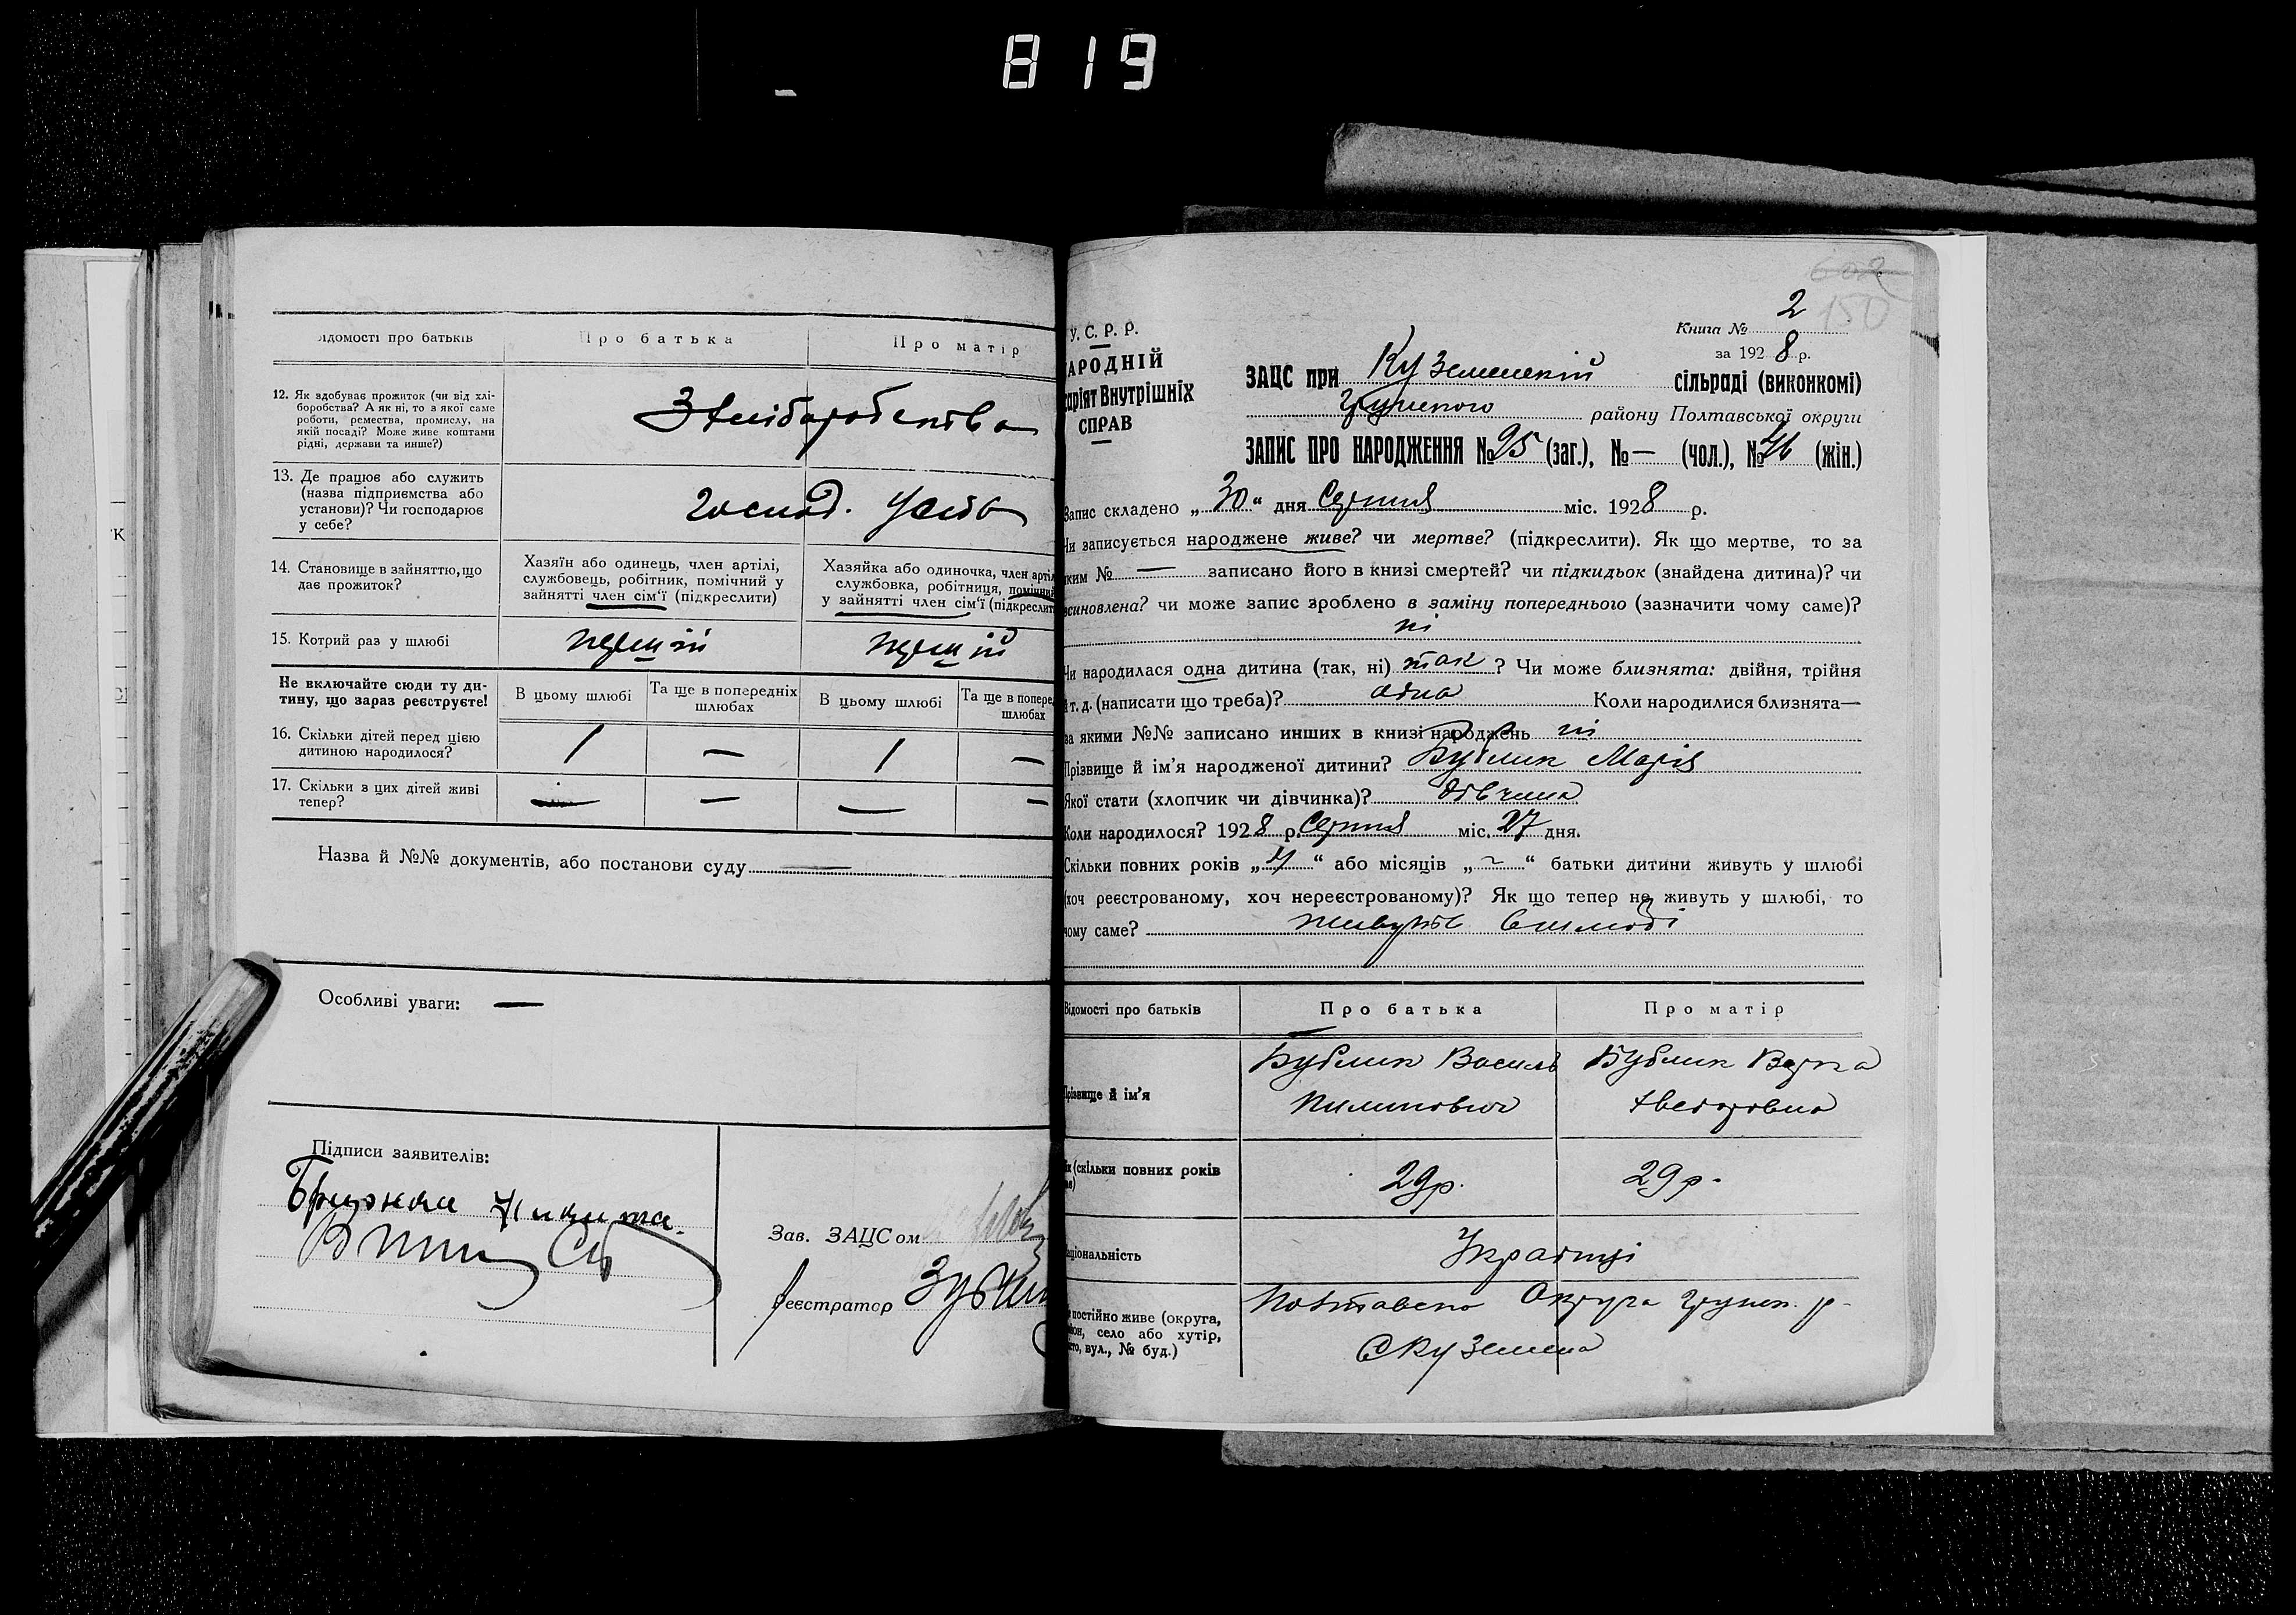 819
Відомості про батьків
Про батька
Про матір
12. Як здобуває прожиток (чи від хлі-
боробства? А як ні, то з якої саме
роботи, ремества, промислу, на
якій посаді? Може живе коштами
рідні, держави та инше?)
З хліборобства
13. Де працює або служить
(назва підприємства або
установи)? Чи господарює
у себе?
господ. у себе
14. Становище в зайняттю, що
дає прожиток?
Хазяїн або одинець, член артілі,
службовець, робітник, помічний у
зайнятті член сім'ї (підкреслити)
Хазяйка або одиночка, член артіл
службовка, робітниця, помічний
у зайнятті член сім'ї (підкреслит
15. Котрий раз у шлюбі
перший
перший
Не включайте сюди ту ди-
тину, що зараз реєструєте!
В цьому шлюбі
Та ще в попередніх
шлюбах
В цьому шлюбі
Та ще в поперед
шлюбах
16. Скільки дітей перед цією
дитиною народилося?
1 — 1 —
17. Скільки з цих дітей живі
тепер?
— — — —
Назва й №№ документів, або постанови суду —
Особливі уваги: —
Підписи заявителів:
Зав. ЗАЦСом
Реєстратор
602
150
У. С. Р. Р.
АРОДНІЙ
аріят Внутрішніх
СПРАВ
Книга № 2
за 1928 р.
ЗАЦС при Куземенській сільраді (виконкомі)
Грунського району Полтавської округи
ЗАПИС ПРО НАРОДЖЕННЯ № 95 (заг.), № — (чол.), № 46 (жін.)
Запис складено „30“ дня Серпня міс. 1928 р.
Чи записується народжене живе? чи мертве? (підкреслити). Як що мертве, то за
яким № — записано його в книзі смертей? чи підкидьок (знайдена дитина)? чи
всиновлена? чи може запис зроблено в заміну попереднього (зазначити чому саме)?
ні
Чи народилася одна дитина (так, ні) так? Чи може близнята: двійня, трійня
і т. д. (написати що треба)? одна Коли народилися близнята—
за якими №№ записано инших в книзі народжень ні
Прізвище й ім'я народженої дитини? Бублик Марія
Якої стати (хлопчик чи дівчинка)? дівчина
Коли народилося? 1928 р. Серпня міс. 27 дня.
Скільки повних років „4“ або місяців „~“ батьки дитини живуть у шлюбі
(хоч реєстрованому, хоч нереєстрованому)? Як що тепер не живуть у шлюбі, то
чому саме? живуть
Відомості про батьків
Про батька
Про матір
Прізвище й ім'я
Бублик Василь
Пилипович
Бублик Варка
Хведоровна
ік (скільки повних років
29р.
29р.
аціональність
Українці
постійно живе (округа,
йон, село або хутір,
сто, вул., № буд.)
Полтавська Округа Грунськ. р-
с Куземена